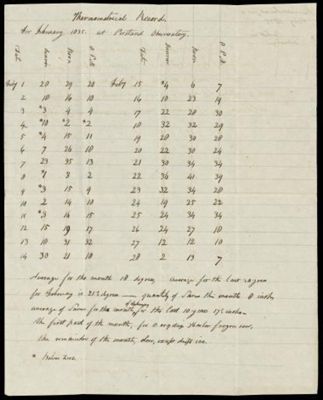 Thermometrical Record.
For February 1835. at Portland Observatory.
Date Sunrise Noon 9 P.M. Date Sunrise Noon 9 P.M.
Feby 1 20 29 20 Feby 15 *4 6 7
2 10 16 10 16 10 23 19
3 *3 4 4 17 22 28 30
4 *10 *2 *2 18 32 32 29
5 *4 15 11 19 20 30 28
6 7 26 18 20 22 30 24
7 23 35 13 21 30 34 34
8 *1 8 2 22 36 41 39
9 *3 15 9 23 32 34 28
10 2 14 10 24 19 25 22
11 *3 16 15 25 24 34 34
12 15 19 17 26 24 27 18
13 10 31 32 27 12 12 10
14 30 21 10 28 2 13 7
Average for the month 18 degrees average for the last 10 years
for February is 21½ degrees — quantity of Snow this month 8 inches
average of Snow for the month of February for the last 10 years 17½ inches
the first part of the month, for days the Harbor frozen over.
the remainder of the month, clear, except drift ice.
* below Zero.